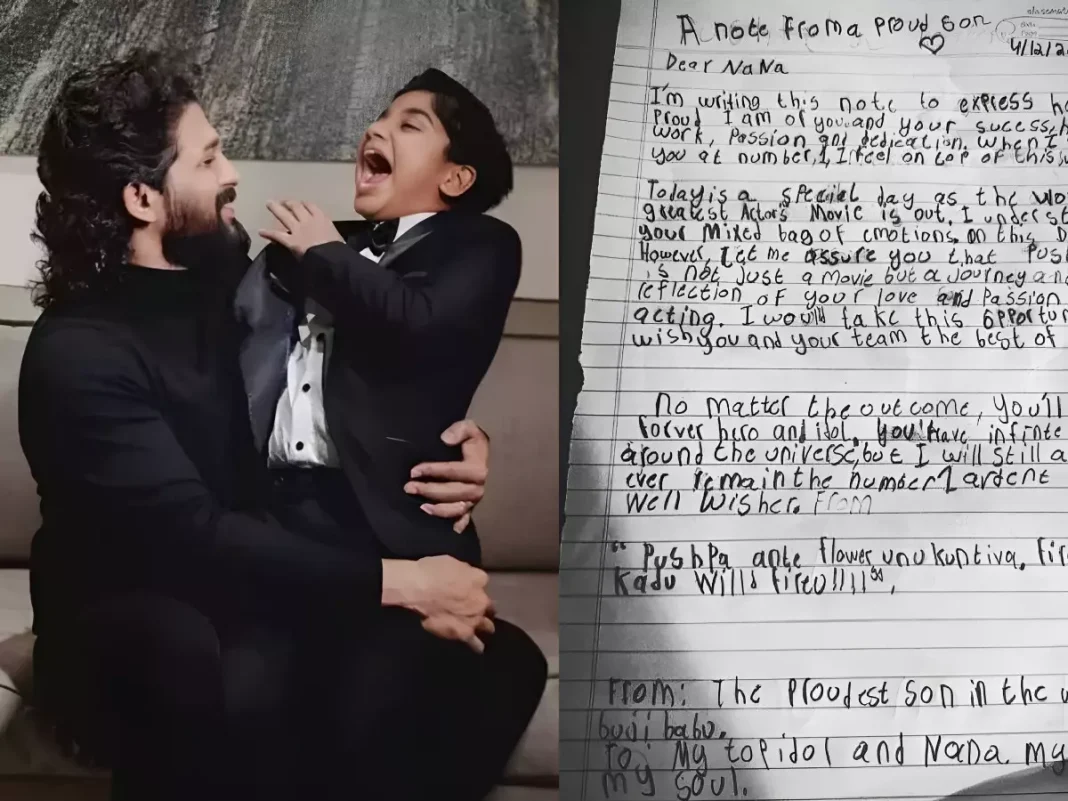 A note From a Proud Son
4/12/2
Dear NaNa
I'm writing this note to express h
Proud I am of you and your sucess h
work, Passion and dedication. When I
you at number 1, I feel on top of this
Today is a special day as the wo
greatest Actor's Movie is out. I underst
your Mixed bag of emotions on this D
However, Let me assure you that Pus
is not just a movie but a journey and
reflection of your love and Passion
acting. I would take this opportun
wish you and your team the best of
No matter the outcome, you'll
forver hero and idol. you'have infinte
around the universe, but I will still a
ever remain the number 1 ardent
well wisher. From
“ Pushpa ante flower unukuntiva, fir
Kadu Willd fireu!!!!”.
From: The Proudest Son in the w
buji babu.
To: My top idol and Nana. my
my soul.